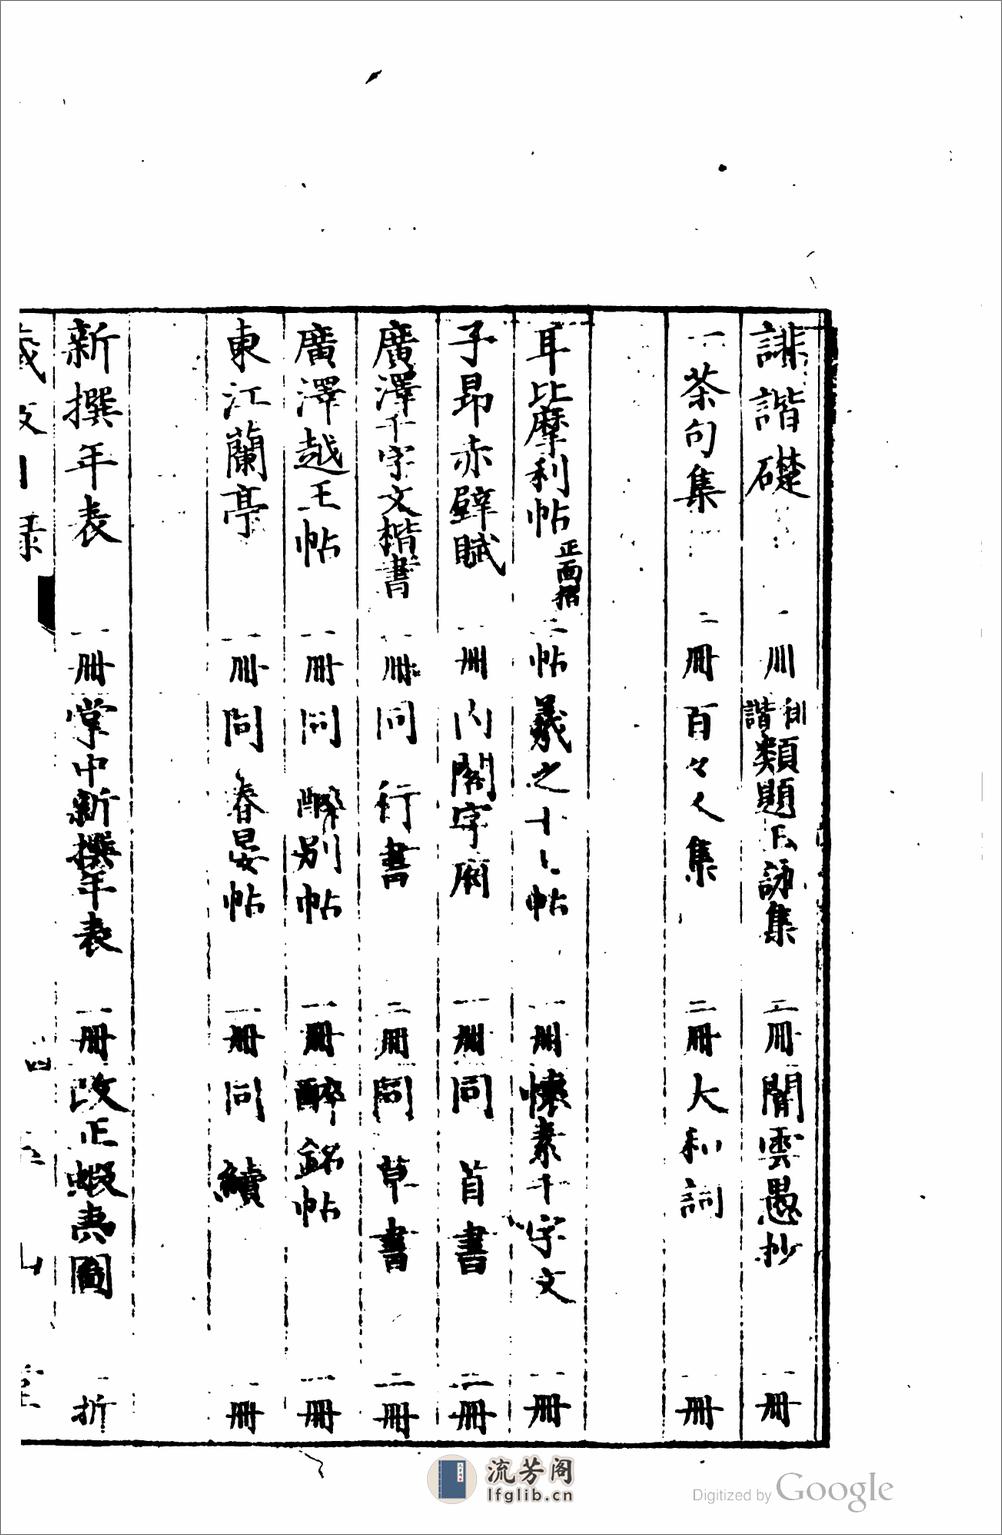 誹諧礎 一冊 俳諧類題 詠集 二冊 聞雲愚抄 一冊
一茶句集 二冊 百々人集 二冊 大和詞 一冊
耳比摩利帖 正面摺 二帖 羲之十七帖 一冊 懐素千字文 一冊
子昂赤壁賦 一冊 内閣字府 一冊 同 首書 二冊
廣澤千字文楷書 一冊 同 行書 二冊 同 草書 二冊
廣澤越王帖 一冊 同 酔別帖 一冊 酔銘帖 一冊
東江蘭亭 一冊 同 春宴帖 一冊 同 續 一冊
新撰年表 一冊 掌中新撰年表 一冊 改正蝦夷圖 一折
流芳阁
lfglib.cn
Digitized by Google